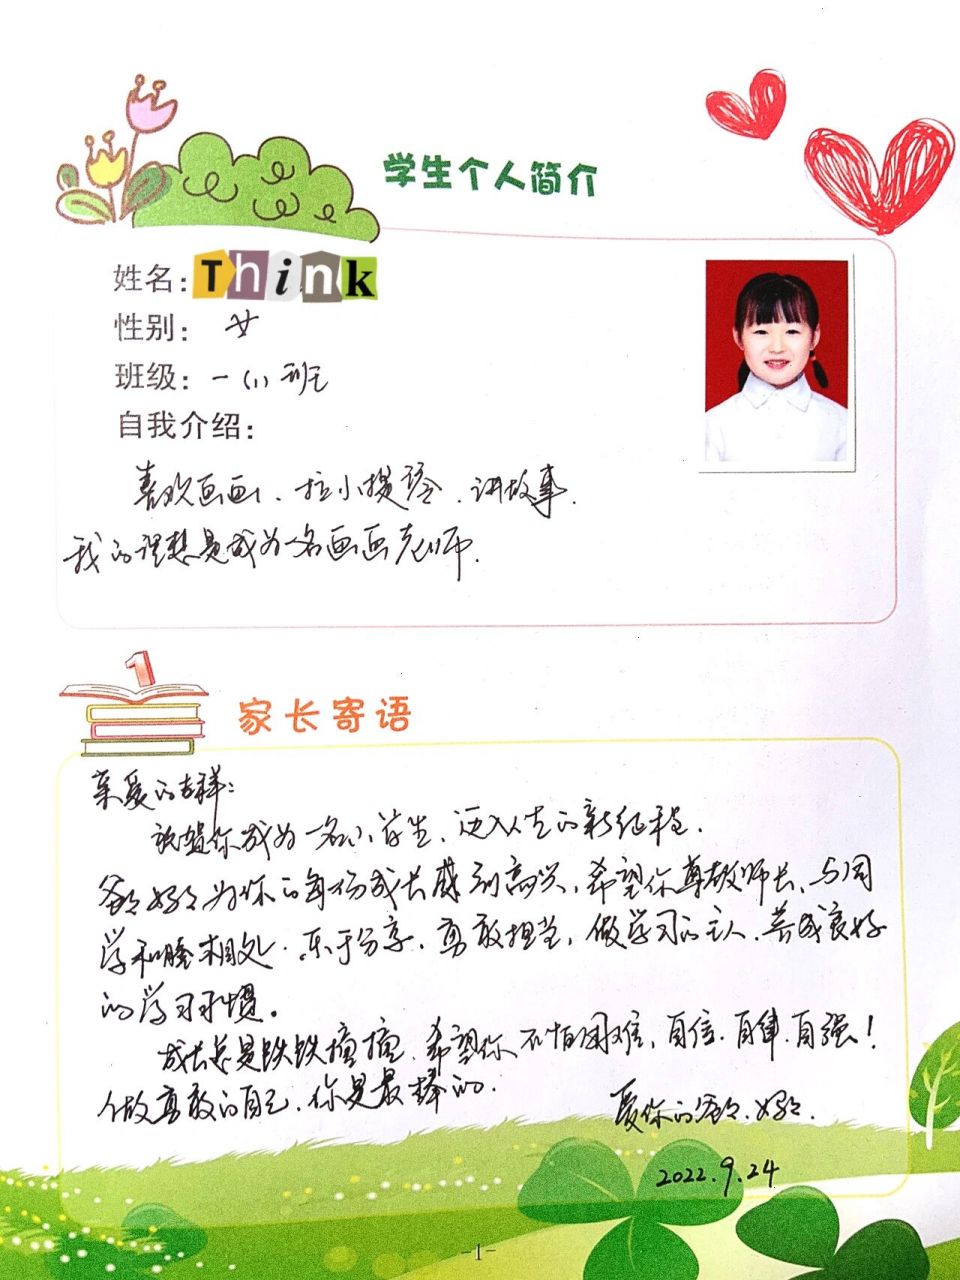 学生个人简介
姓名: Think
性别: 女
班级: 一(1)班
自我介绍:
喜欢画画、拉小提琴、讲故事.
我的理想是成为一名画画老师.
1
家长寄语
亲爱的吉祥:
祝贺你成为一名小学生,迈入人生的新征程.
爸爸妈妈为你的每份成长感到高兴,希望你尊敬师长、与同
学和睦相处、乐于分享、勇敢担当,做学习的主人、养成良好
的学习习惯。
成长总是跌跌撞撞,希望你不怕困难,自信、自律、自强!
做勇敢的自己,你是最棒的.
爱你的爸爸、妈妈.
2022.9.24
-1-